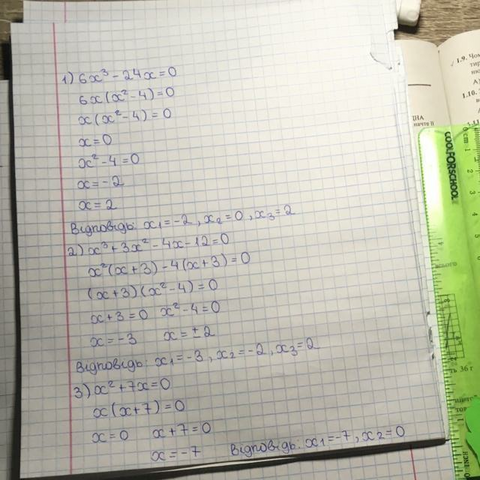 1) 6x³ - 24x = 0
6x(x² - 4) = 0
x(x² - 4) = 0
x = 0
x² - 4 = 0
x = -2
x = 2
Відповідь: x₁ = -2, x₂ = 0, x₃ = 2
2) x³ + 3x² - 4x - 12 = 0
x²(x + 3) - 4(x + 3) = 0
(x + 3)(x² - 4) = 0
x + 3 = 0 x² - 4 = 0
x = -3 x = ±2
Відповідь: x₁ = -3, x₂ = -2, x₃ = 2
3) x² + 7x = 0
x(x + 7) = 0
x = 0 x + 7 = 0
x = -7 Відповідь: x₁ = -7, x₂ = 0
1.9.
1.10.
COOLFORSCHOOL